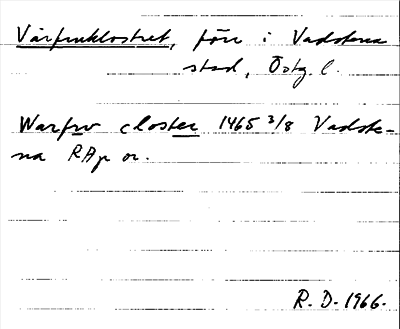 Vårfruklostret, förr i Vadstena
stad, Östg l.
Warfrv closter 1465 3/8 Vadste-
na RAp or.
R. D. 1966.